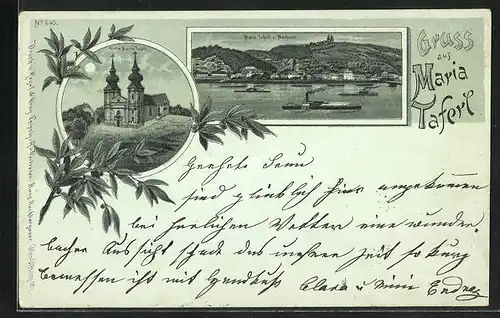 No 640.
Kirche Maria Taferl.
Maria Taferl u. Marbach.
Gruss
aus
Maria
Taferl
Geehrte Frau
sind glücklich hier angekommen
bei herlichen Wetter eine wunder-
bacher Aussicht schade das unsere Zeit so kurz
bemessen ist mit Handkuß Clara u